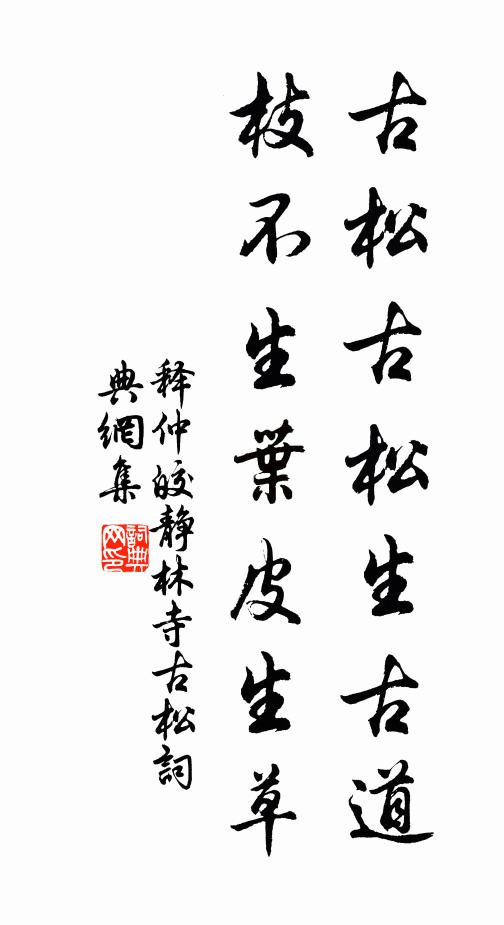 古松古松生古道
枝不生葉皮生草
释仲皎静林寺古松詞
典網集
詞典网印